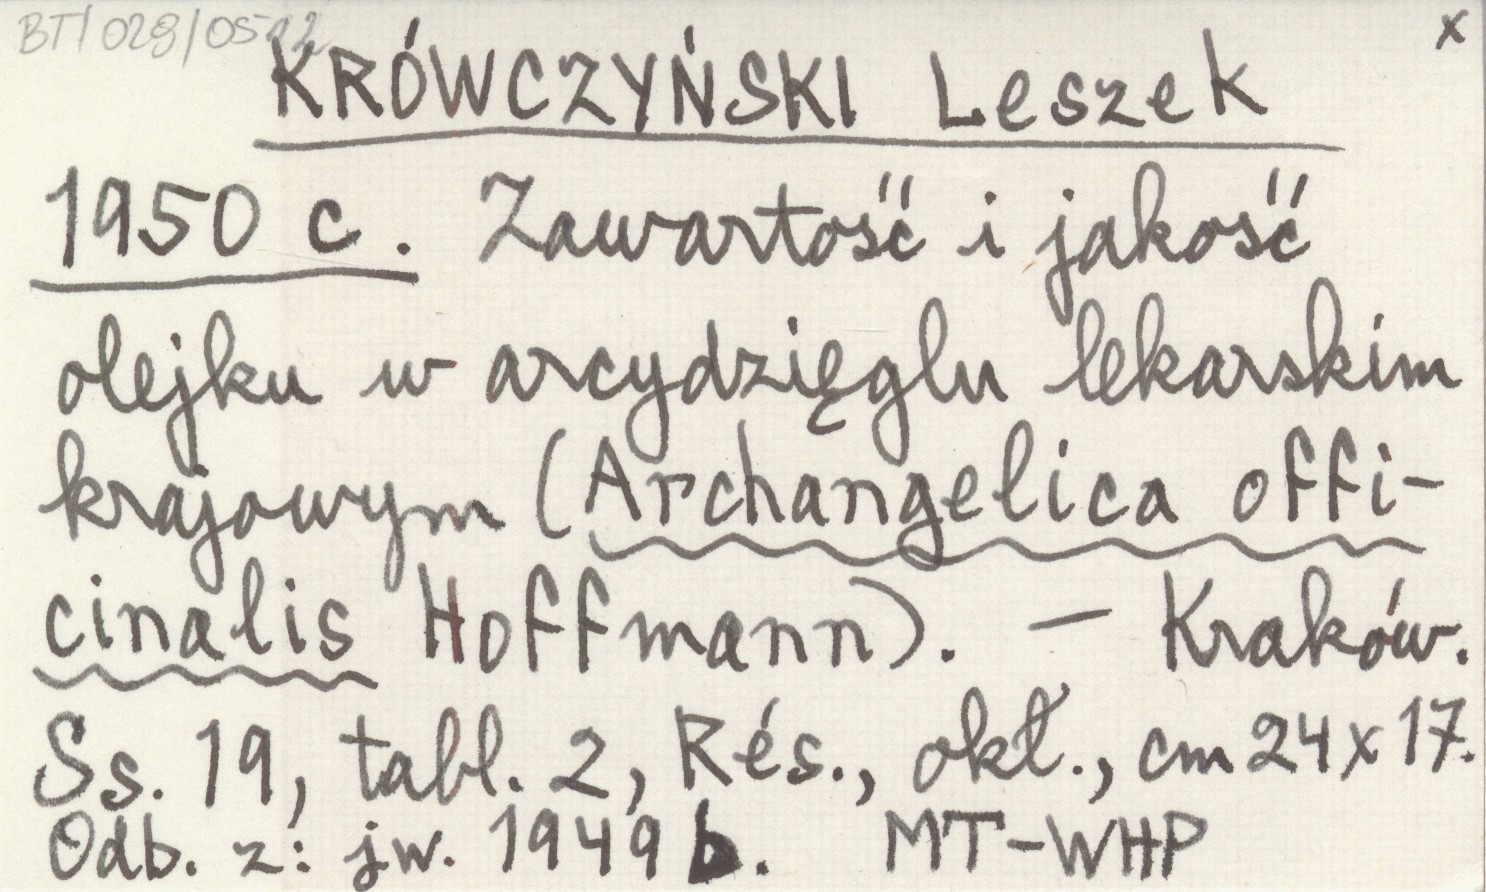 BT/028/0512 x
KRÓWCZYŃSKI Leszek
1950 c. Zawartość i jakość
olejku w arcydzięglu lekarskim
krajowym (Archangelica offi-
cinalis Hoffmann). — Kraków.
Ss. 19, tabl. 2, Rés., okł., cm 24x17.
Odb. z: jw. 1949 b. MT-WHP